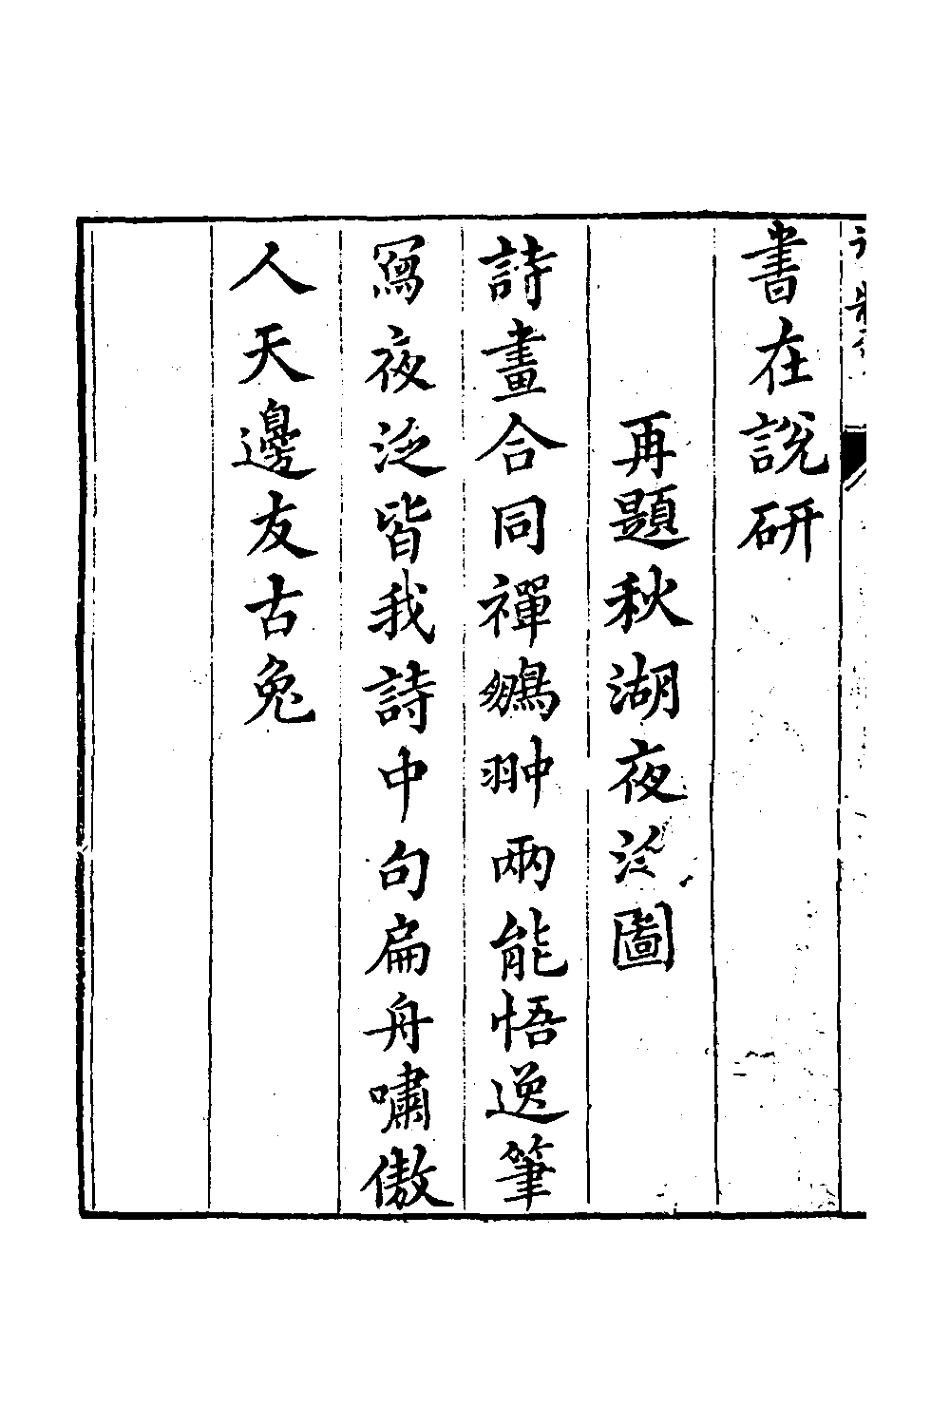 書在說研
再題秋湖夜泛圖
詩畫合同禪翀兩能悟逸筆
寫夜泛皆我詩中句扁舟嘯傲
人天邊友古兔